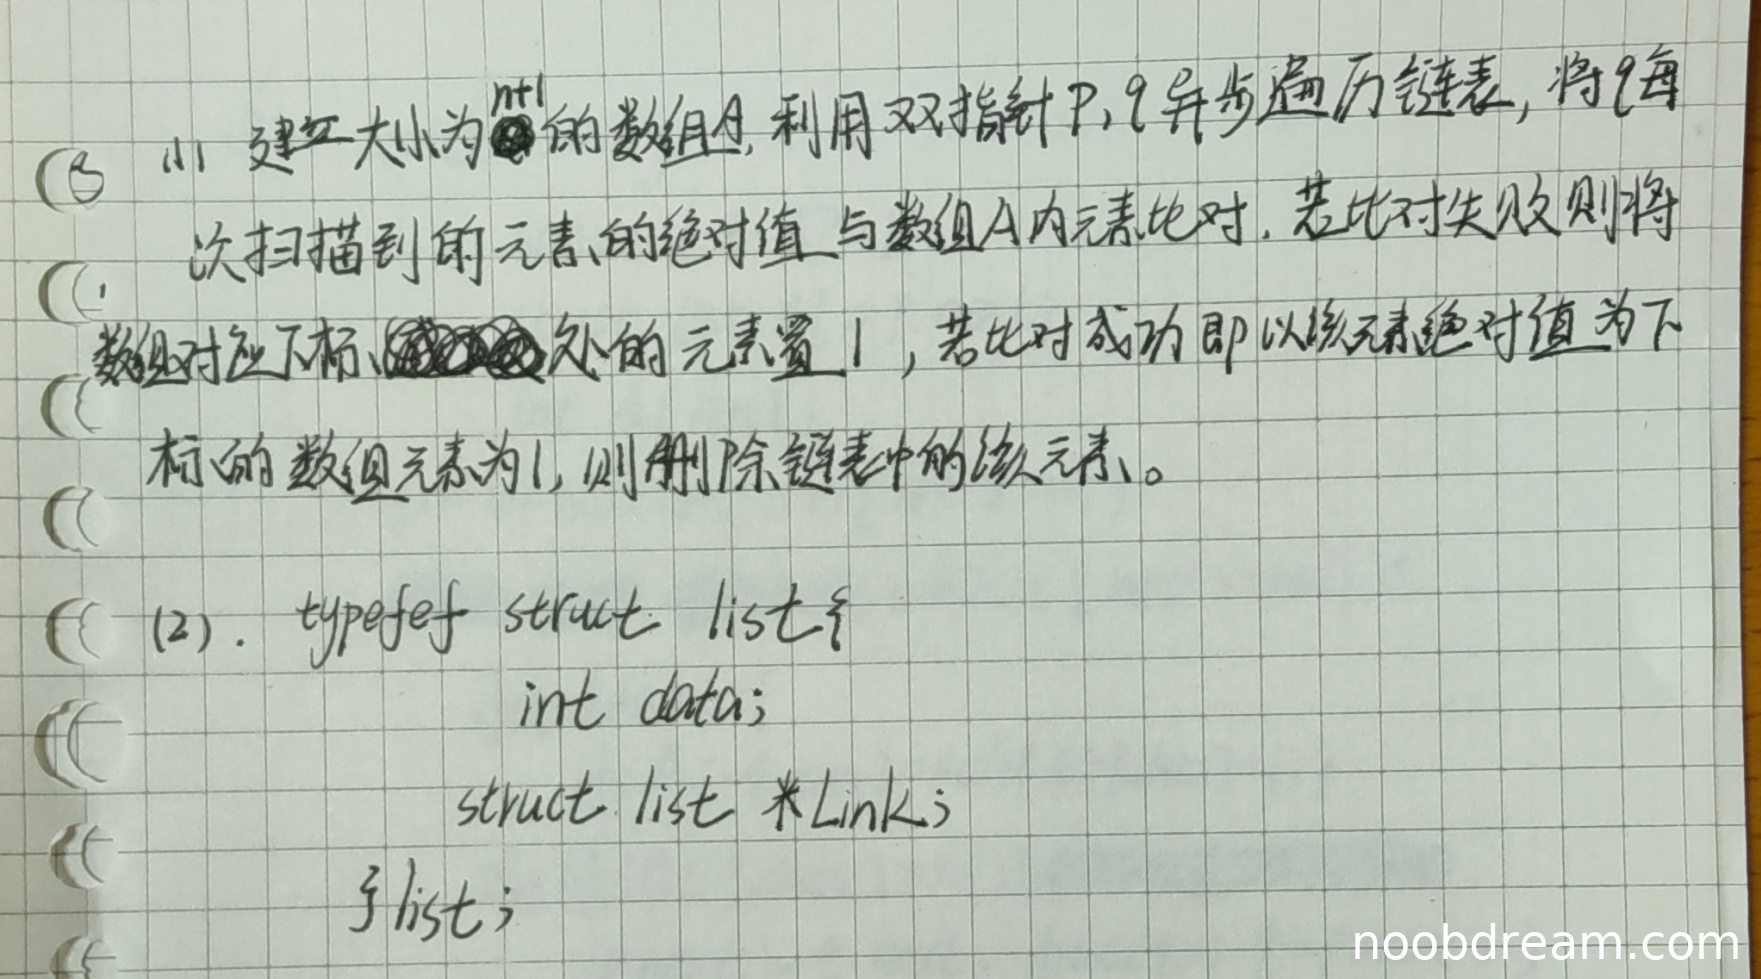 (1) 建立大小为n+1的数组A, 利用双指针P,q异步遍历链表, 将q每
次扫描到的元素的绝对值与数组A内元素比对. 若比对失败则将
数组对应下标处的元素置1, 若比对成功即以该元素绝对值为下
标的数组元素为1, 则删除链表中的该元素。
(2). typefef struct list{
int data;
struct list *Link;
}list;
noobdream.com